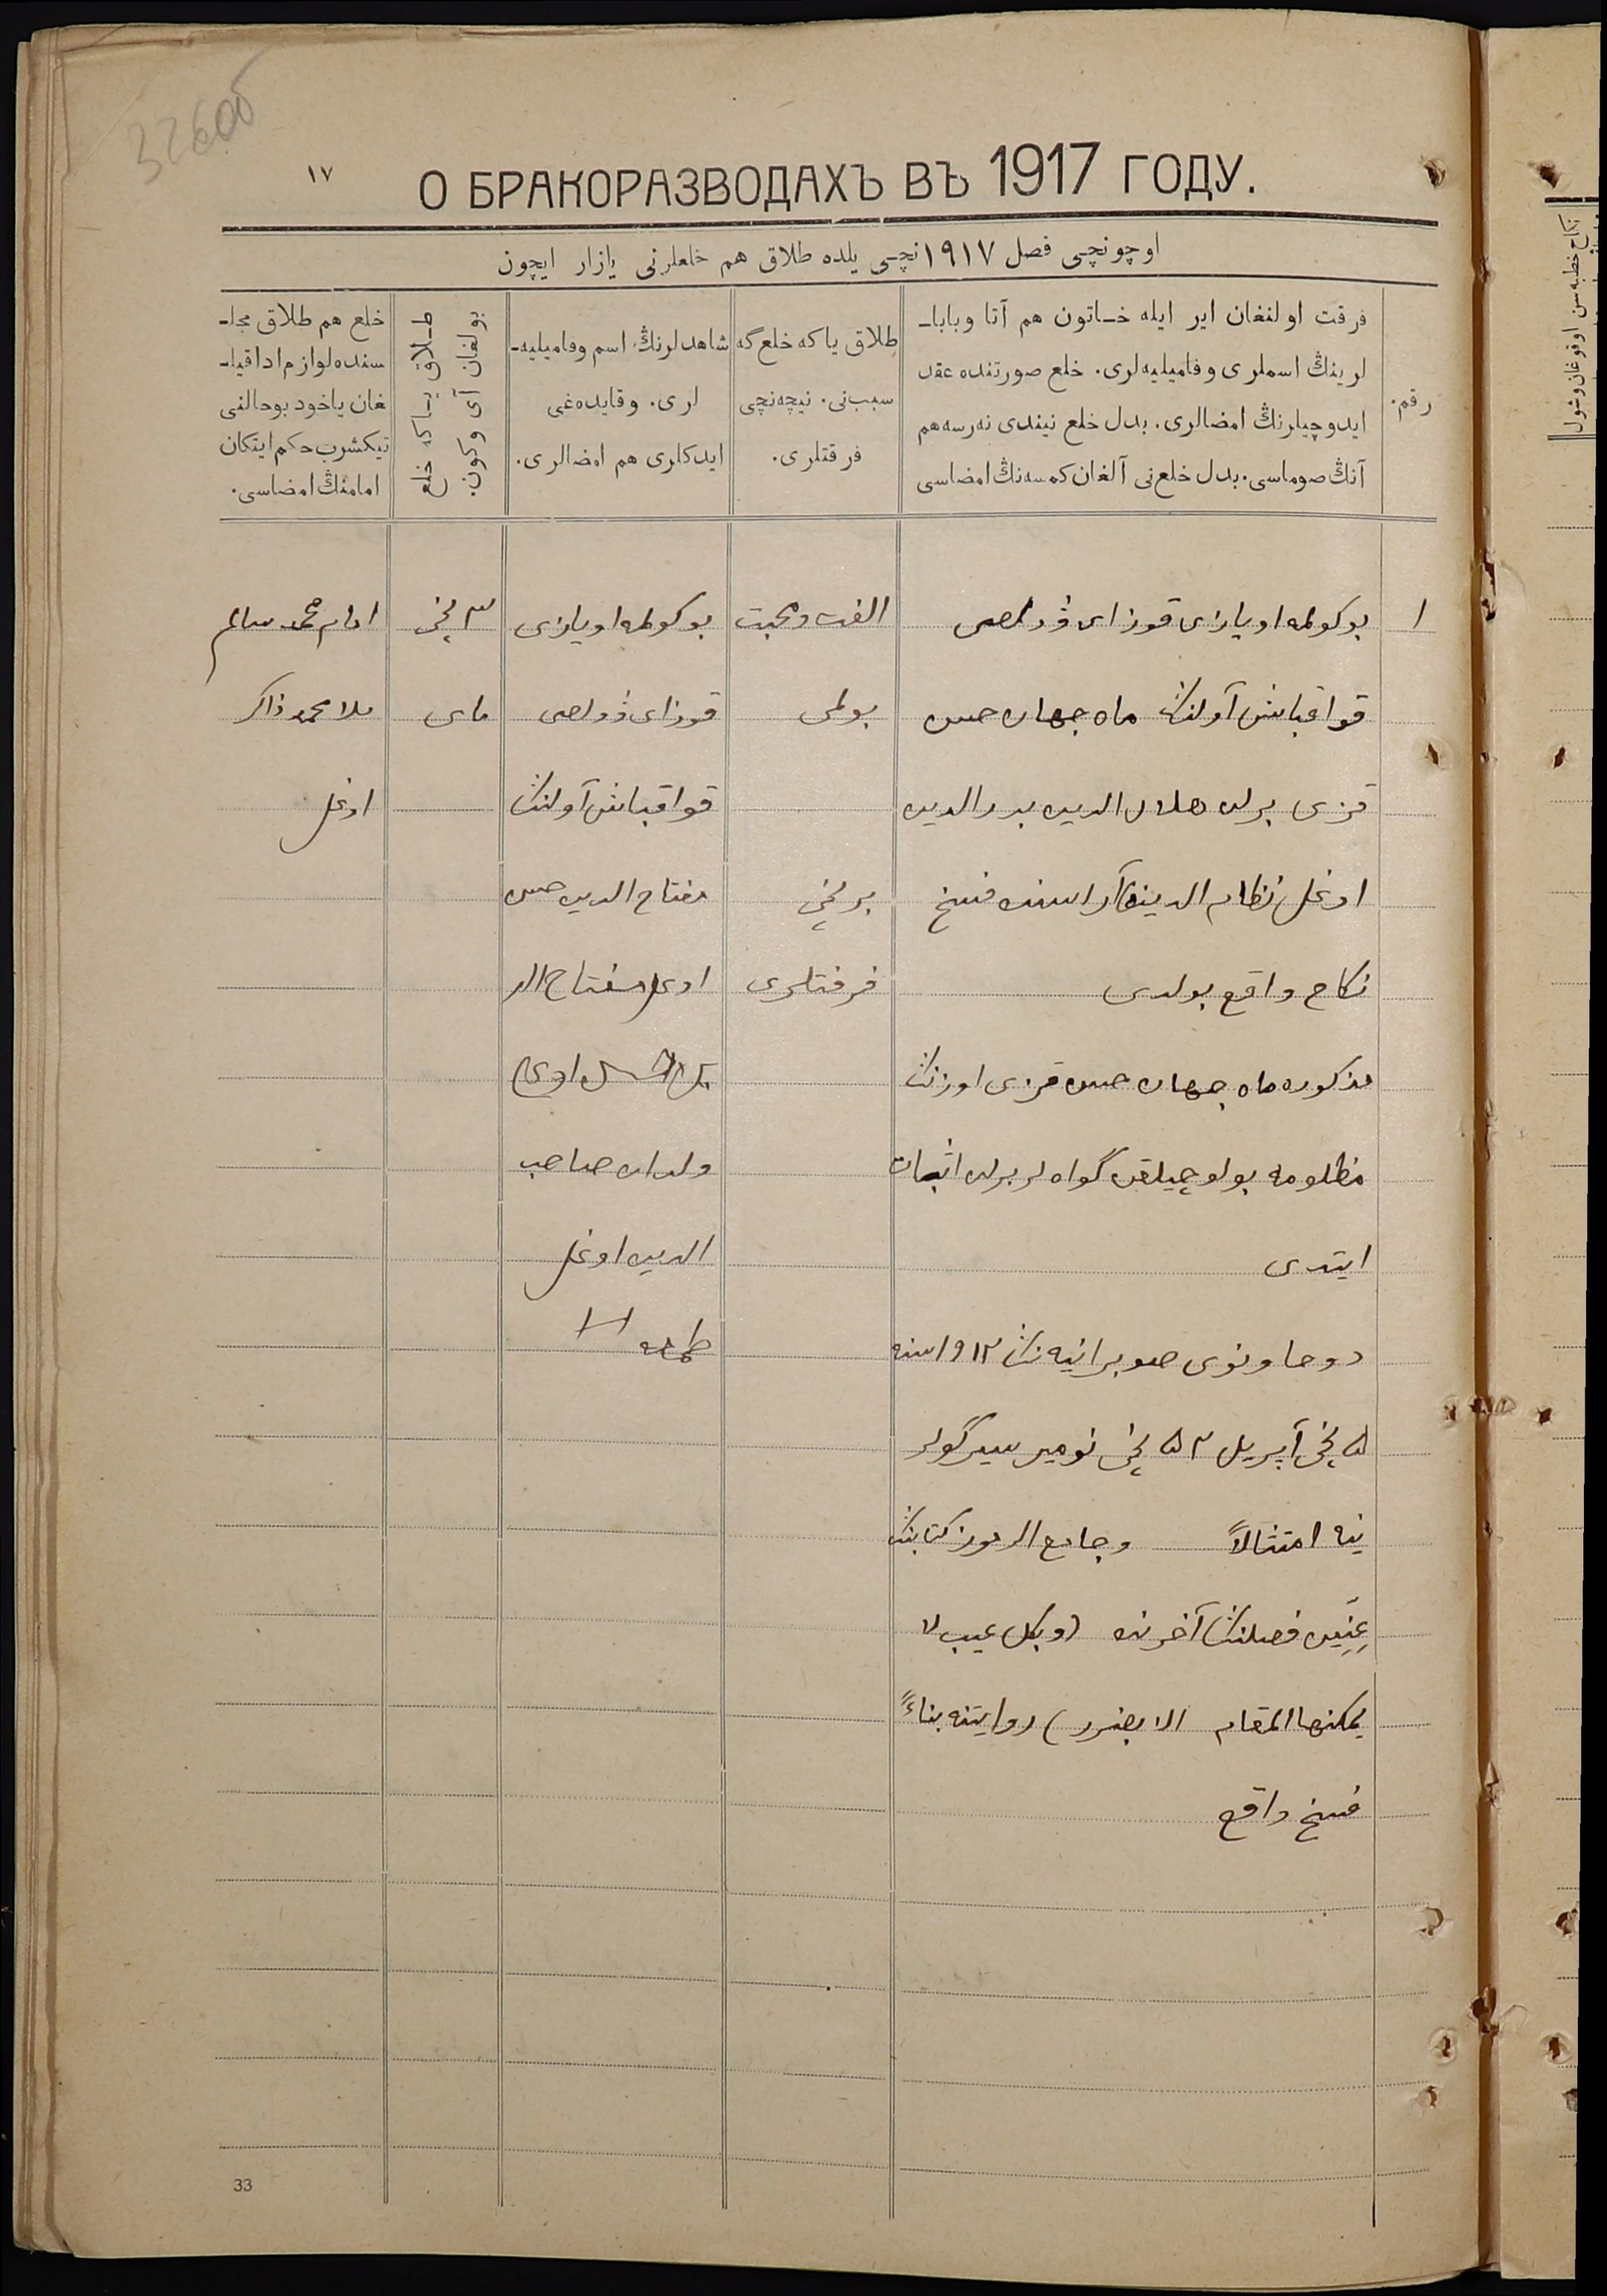 326об
١٧
О БРАКОРАЗВОДАХЪ ВЪ 1917 ГОДУ.
اوچونچی فصل ١٩١٧ نچی یلده طلاق هم خلعلرنی یازار ایچون
رقم.
فرقت اولنغان ایر ایله خاتون هم آتا وبابا-
لرینڭ اسملری وفامیلیه‌لری. خلع صورتنده عقد
ایدوچیلرنڭ امضالری. بدل خلع نیندی نه‌رسه‌هم
آنڭ صوماسی. بدل خلع‌نی آلغان کمسه‌نڭ امضاسی
طلاق یاکه خلع‌گه
سبب‌نی. نیچه‌نچی
فرقتلری.
شاهدلرنڭ اسم وفامیلیه-
لری. وقایده‌غی
ایدکلری هم امضالری.
طلاق یاکه خلع
بولغان آی وکون.
خلع هم طلاق مجل-
سنده لوازم ادا قیل-
غان یاخود بوحالنی
تیکشرب حکم ایتکان
امامنڭ امضاسی.
١
بوکولمه اویازی قوزای ۋولصی
قواقباش آولنڭ ماه جهان حسن
قزی برله هلال الدین بدرالدین
اوغلی نظام الدیننڭ آراسنده فسخ
نکاح واقع بولدی
مذکوره ماه جهان حسن قزی اوزنڭ
مظلومه بولوچیلقن گواه لر برله اثبات
ایتدی
دوحاونوی صوبرانیه نڭ ١٩١٢ سنه
٥ نچی آپریل ٥٢ نچی نومیر سیرکولر
ینه امتثالاً وجامع الرموز کتابنڭ
عِنِّین فصلنڭ آخرنده (وبکل عیب لا
یمکنها المقام الا بضرر) روایتنه بناءً
فسخ واقع
الفت ومحبت
بولمی
برنچی
فرقتلری
بوکولمه اویازی
قوزای ۋولصی
قواقباش آولنڭ
مفتاح الدین حسن
اوغلی مفتاح الد
ولدان صاحب
الدین اوغلی
طمغه
٣ نچی
مای
امام محمد سالم
ملا محمد ذاکر
اوغلی
33
نکاح خطبه سن اوقوغان وشول